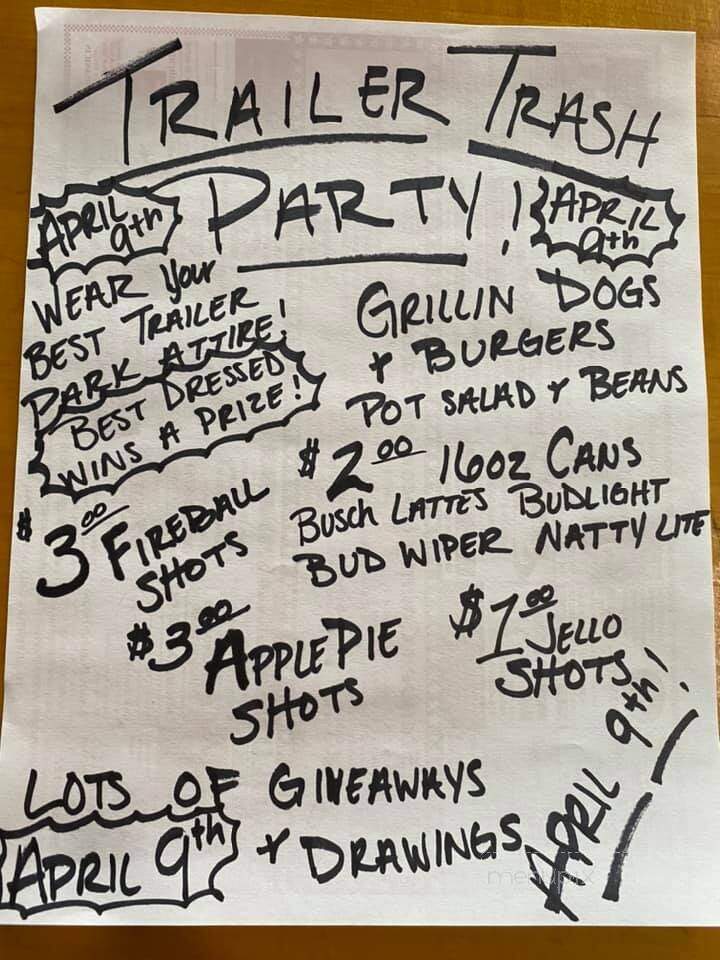 TRAILER TRASH
PARTY!
APRIL
9th
APRIL
9th
WEAR your
BEST TRAILER
PARK ATTIRE!
BEST DRESSED
WINS A PRIZE!
GRILLIN DOGS
+ BURGERS
POT SALAD + BEANS
$2.00 16oz CANS
BUSCH LATTES BUDLIGHT
BUD WIPER NATTY LITE
$3.00 FIREBALL
SHOTS
$3.00 APPLE PIE
SHOTS
$1.00 JELLO
SHOTS
APRIL 9th!
LOTS OF GIVEAWAYS
+ DRAWINGS
APRIL 9th
menupix